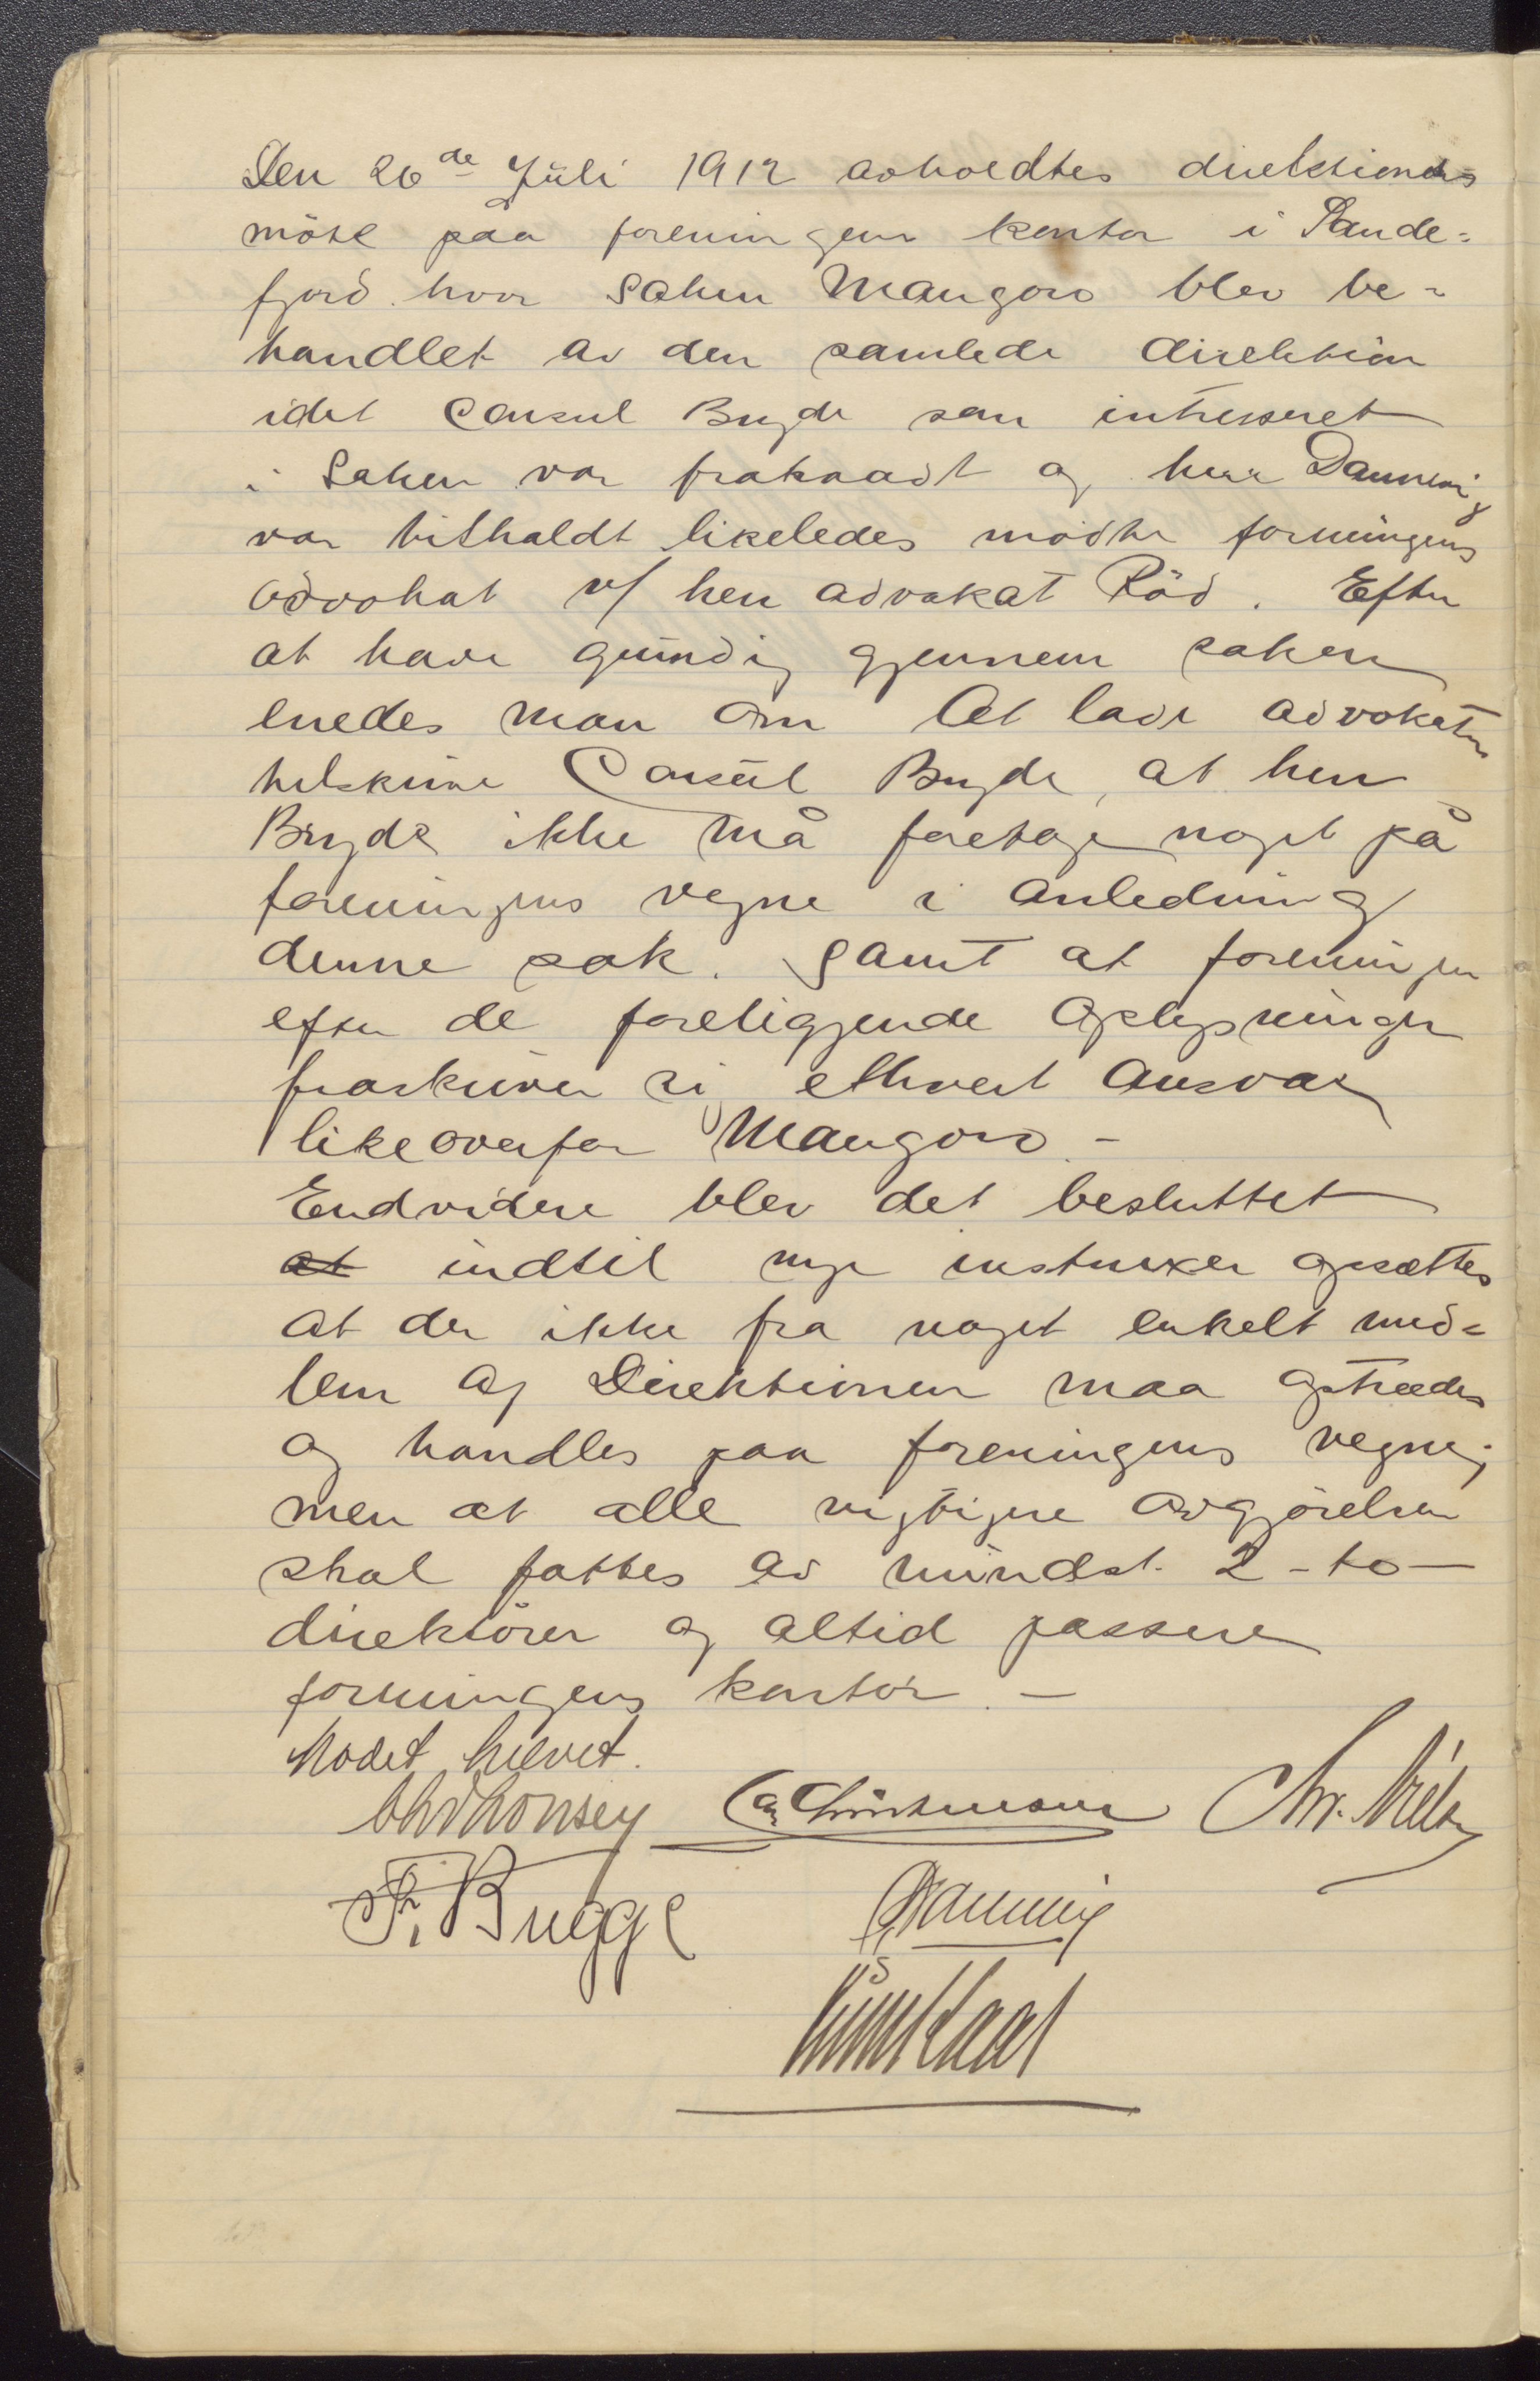 Den 26de Juli 1912 avholdtes direktions
möte paa foreningens kontor i Sande=
fjord hvor saken Mangoro blev be=
handlet av den samlede direktion
idet Consul Bryde som intresseret
i saken var fratraadt og herr Dannevig
var tilkaldt likeledes mødte foreningens
advokat v/ herr advokat Röd. Efter
at have grundig gjennem saken
enedes man om at lade advokaten
tilskrive Consul Bryde, at herr
Bryde ikke må foretage noget på
foreningens vegne i anledning
denne sak. Samt at foreningen
efter de foreliggende oplysninger
fraskriver sig ethvert ansvar
likeoverfor Mangoro. –
Endvidere blev det besluttet
at indtil nye instruxer opsættes
at der ikke fra noget enkelt med=
lem af Direktionen maa optrædes
og handles paa foreningens vegne;
men at alle vigtigere avgjörelser
skal fattes av mindst 2 - to –
direktörer og altid passere
foreningens kontor. –
Mödet hævet.
Chr. Nielsen
F. Bugge
Dannevig